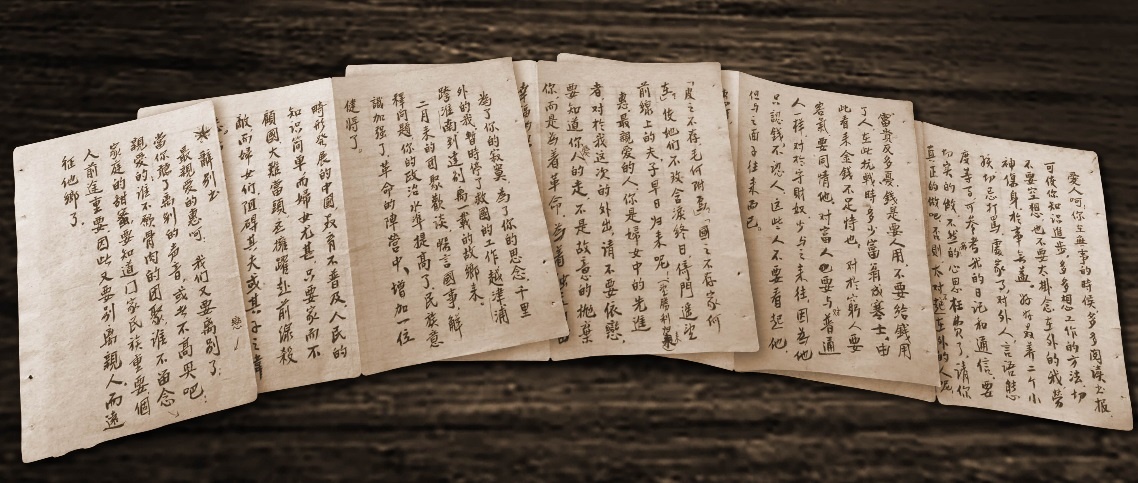 ★辭别书
最親愛的惠呵,我们又要离别了,
當你听了离别的声音,或者不高興吧!
親愛的谁不願骨肉的团聚谁不留念
家庭的甜蜜要知道家民族重要個
人前途重要因此又要别离親人而遠
征他鄉了.
時形发展的中國最有不普及人民的
知识简單而婦女尤甚,只要家而不
顧國大难當頭丞應踴躍赴前線殺
敵而婦女们阻碍其夫或其子之
為了你的寂寞,為了你的思念千里
外的我暂時停了救國的工作越津浦
跨淮南到達别离一载的故鄉来.
二月来的团聚歡谈慨言國事解
释问题你的政治水準提高了民族意
識加强了革命的陣营中,增加一位
健將了。
「皮之不存毛何附焉」國之不存家何
在,後她们不致含淚终日倚門遥望
前線上的夫子早日归来呢(求勝利
惠最親爱的人你是婦女中的先進
者對於我這次的外出,请不要依戀,
要知道你人的走不是故意的抛棄
你而是為着革命,為着
富贵反多憂,钱是要人用不要给錢用
了人在此抗戰時多少富翁成寒士,由
此看来金钱不足恃也,對於穷人要
客氣要同情他對富人也要与普通
人一样,對於守財奴少与之来往因為他
只認钱不認人這些人不要看起他
但与之面子往来而已。
愛人呵你在無事的時候多多阅读书报
可使你知识進步,多多想工作的方法切
不要空想,也不要太掛念在外的我劳
神伤身於事無益.好好养着二个小
孩切忌打骂處家了对外人言语態
度等等可参考我的日记和通信,要
切实的做不我的心思枉费了,请你
真正的做吧否则太对起在外的人呢